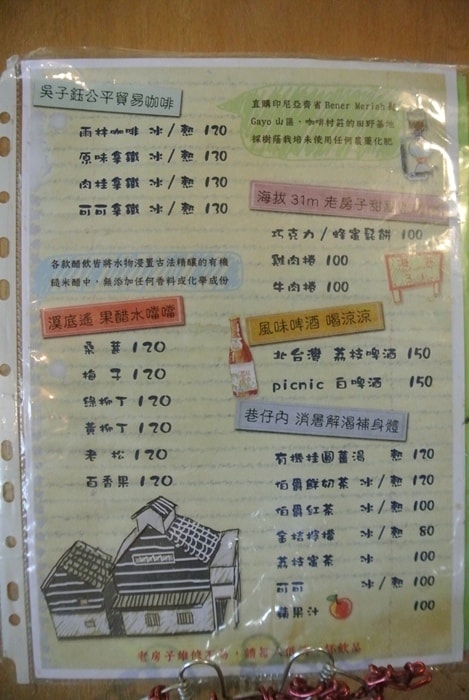 吳子鈺公平貿易咖啡
雨林咖啡 冰/熱 120
原味拿鐵 冰/熱 130
肉桂拿鐵 冰/熱 130
可可拿鐵 冰/熱 130
直購印尼亞齊省 Bener Meriah
Gayo 山區，咖啡村莊的田野基地
採樹蔭栽培未使用任何農藥化肥
海拔 31m 老房子甜
巧克力/蜂蜜鬆餅 100
雞肉捲 100
牛肉捲 100
各款醋飲皆將水物浸置古法精釀的有機
糙米醋中，無添加任何香料或化學成份
溪底遙 果醋水噹噹
桑葚 120
梅子 120
綠柳丁 120
黃柳丁 120
老松 120
百香果 120
風味啤酒 喝涼涼
北台灣 荔枝啤酒 150
picnic 白啤酒 150
巷仔內 消暑解渴補身體
有機桂圓薑湯 熱 120
伯爵鮮奶茶 冰/熱 120
伯爵紅茶 冰/熱 100
金桔檸檬 冰/熱 80
荔枝蜜茶 冰 100
可可 冰/熱 100
蘋果汁 100
老房子維修不易，請每人
飲品